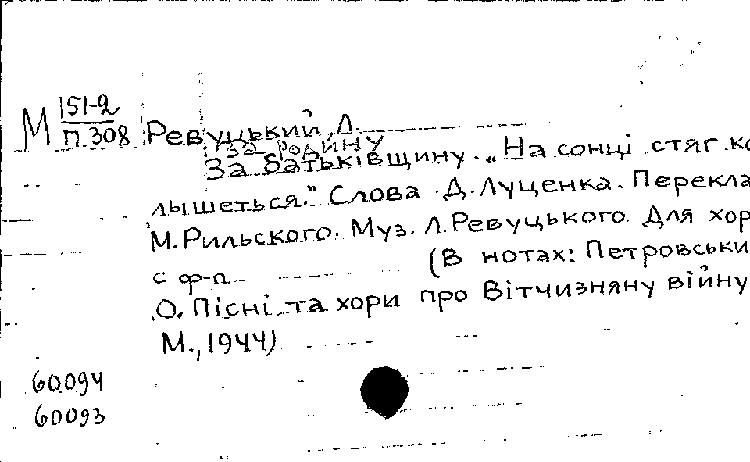 М 151-2
П.308
Ревуцький, Л.
За Родину
За батьківщину. „На сонці стяг ко
лышеться." Слова Д. Луценка. Перекла
М. Рильского. Муз. Л. Ревуцького. Для хор
с ф-п. (В нотах: Петровськи
О. Пісні та хори про Вітчизняну війну
М., 1944)
60094
60093